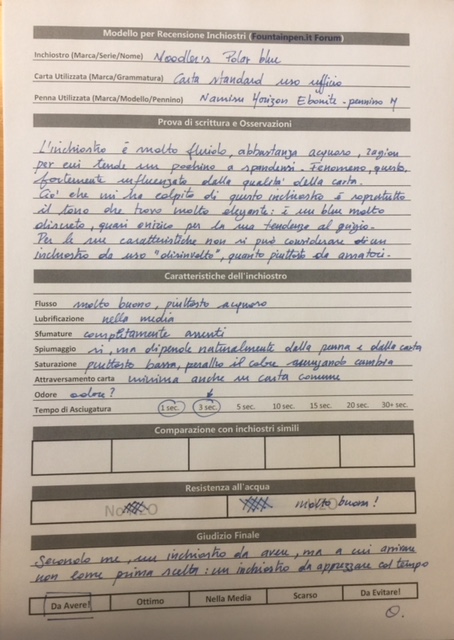 Modello per Recensione Inchiostri (Fountainpen.it Forum)
Inchiostro (Marca/Serie/Nome) Noodler's Polar blue
Carta Utilizzata (Marca/Grammatura) Carta standard uso ufficio
Penna Utilizzata (Marca/Modello/Pennino) Namisu Horizon Ebonite - pennino M
Prova di scrittura e Osservazioni
L'inchiostro è molto fluido, abbastanza acquoso, ragion
per cui tende un pochino a spandersi. Fenomeno, questo,
fortemente influenzato dalla qualità della carta.
Ciò che mi ha colpito di questo inchiostro è soprattutto
il tono che trovo molto elegante: è un blu molto
discreto, quasi onirico per la sua tendenza al grigio.
Per le sue caratteristiche non si può considerare di un
inchiostro da uso "disinvolto", quanto piuttosto da amatori.
Caratteristiche dell'inchiostro
Flusso molto buono, piuttosto acquoso
Lubrificazione nella media
Sfumature completamente assenti
Spiumaggio si, ma dipende naturalmente dalla penna e dalla carta
Saturazione piuttosto bassa, peraltro il colore asciugando cambia
Attraversamento carta minima anche su carta comune
Odore odore?
Tempo di Asciugatura 1 sec. 3 sec. 5 sec. 10 sec. 15 sec. 20 sec. 30+ sec.
Comparazione con inchiostri simili
Resistenza all'acqua
No H2O H2O molto buona!
Giudizio Finale
Secondo me, un inchiostro da avere, ma a cui arrivare
non come prima scelta: un inchiostro da apprezzare col tempo
Da Avere! Ottimo Nella Media Scarso Da Evitare!